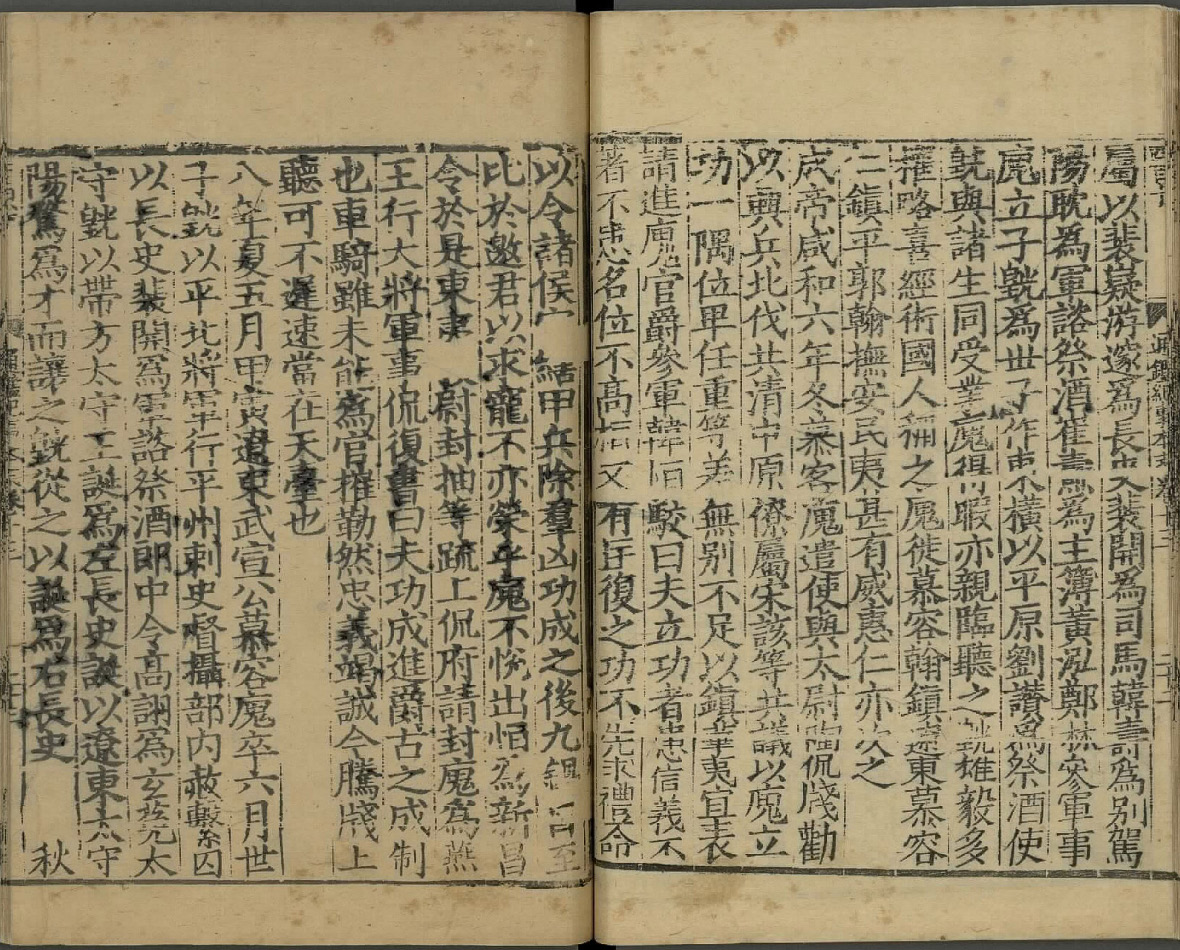 屬以裴嶷游邃爲長史裴開爲司馬韓壽爲别駕
陽耽爲軍諮祭酒崔燾爲主簿黄泓鄭林參軍事
廆立子皝爲世子作東橫以平原劉讃爲祭酒使
皝與諸生同受業廆得暇亦親臨聽之皝雄毅多
權略喜經術國人稱之廆徙慕容翰鎮遼東慕容
仁鎮平郭翰撫安民夷甚有威惠仁亦次之
成帝咸和六年冬慕容廆遣使與太尉陶侃牋勸
以興兵北伐共清中原 僚屬宋該等共議以廆立
功一隅位卑任重等差無别不足以鎮華夷宜表
請進廆官爵參軍韓恒駮曰夫立功者患信義不
著不患名位不高桓文有匡復之功不先求禮命
以令諸侯宜 結甲兵除羣凶功成之後九錫自至
比於邀君以求寵不亦榮乎廆不悅出恒爲新昌
令於是東夷 尉封抽等疏上侃府請封廆爲燕
王行大將軍事侃復書曰夫功成進爵古之成制
也車騎雖未能爲官摧勒然忠義竭誠今騰牋上
聽可不遲速當在天臺也
八年夏五月甲寅遼東武宣公慕容廆卒六月世
子皝以平北將軍行平州刺史督攝部内赦繫囚
以長史裴開爲軍諮祭酒郎中令高詡爲玄菟太
守皝以帶方太守王誕爲左長史誕以遼東太守
陽騖爲才而讓之皝從之以誕爲右長史 秋